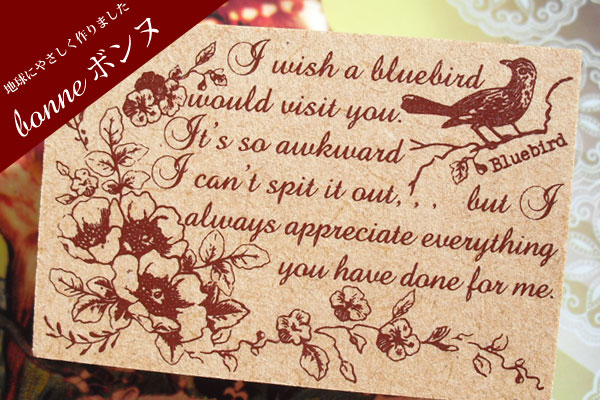 地球にやさしく作りました
bonne ボンヌ
I wish a bluebird
would visit you.
It's so awkward
I can't spit it out,,. but I
always appreciate everything
you have done for me.
Bluebird